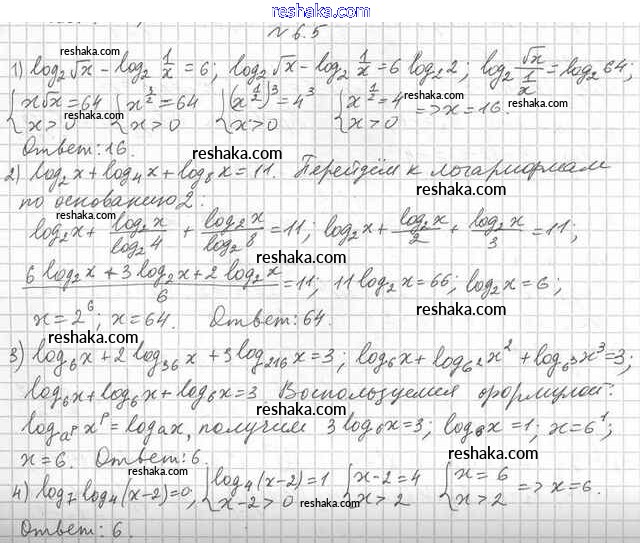 reshaka.com
N 6.5
1) log₂ √x − log₂ 1/x = 6; log₂ √x − log₂ 1/x = 6 log₂ 2; log₂ √x/(1/x) = log₂ 64;
{x√x = 64 x > 0 {x^(3/2) = 64 x > 0 {(x^(1/2))³ = 4³ x > 0 {x^(1/2) = 4 x > 0 => x = 16.
reshaka.com
Ответ: 16. reshaka.com
2) log₂ x + log₄ x + log₈ x = 11. Перейдём к логарифмам
по основанию 2. reshaka.com
log₂ x + log₂ x/log₂ 4 + log₂ x/log₂ 8 = 11; log₂ x + log₂ x/2 + log₂ x/3 = 11;
reshaka.com
(6 log₂ x + 3 log₂ x + 2 log₂ x)/6 = 11; 11 log₂ x = 66; log₂ x = 6;
reshaka.com
x = 2⁶; x = 64. Ответ: 64.
reshaka.com reshaka.com
3) log₆ x + 2 log₃₆ x + 3 log₂₁₆ x = 3; log₆ x + log₆² x² + log₆³ x³ = 3;
reshaka.com
log₆ x + log₆ x + log₆ x = 3 Воспользуемся формулой:
reshaka.com
log_aᵖ xᵖ = log_a x, получим 3 log₆ x = 3; log₆ x = 1; x = 6¹;
reshaka.com
x = 6. Ответ: 6.
reshaka.com reshaka.com
4) log₇ log₄ (x − 2) = 0, {log₄ (x − 2) = 1 x − 2 > 0 {x − 2 = 4 x > 2 {x = 6 x > 2 => x = 6.
reshaka.com reshaka.com
Ответ: 6.
reshaka.com